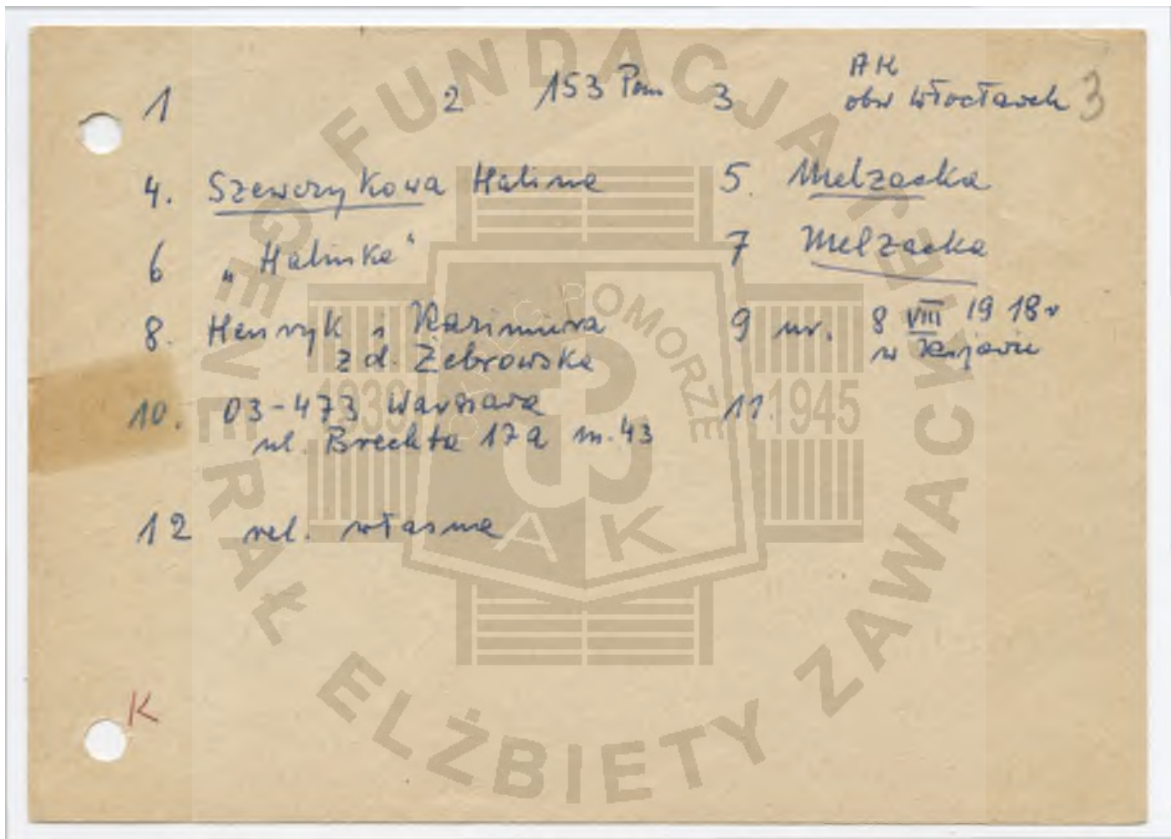 1 2 153 Pom 3 AK
obw Włocławek 3
4. Szewczykowa Halina 5. Melzacka
6 „Halinka” 7 Melzacka
8. Henryk i Kazimiera 9 ur. 8 VIII 1918 r
z d. Żebrowska w Kijowie
10. 03-473 Warszawa 11.
ul. Brechta 17a m. 43
12 rel. własna
K
FUNDACJA GENERAŁ ELŻBIETY ZAWACKIEJ
OKRĘG POMORZE
1939 1945
AK